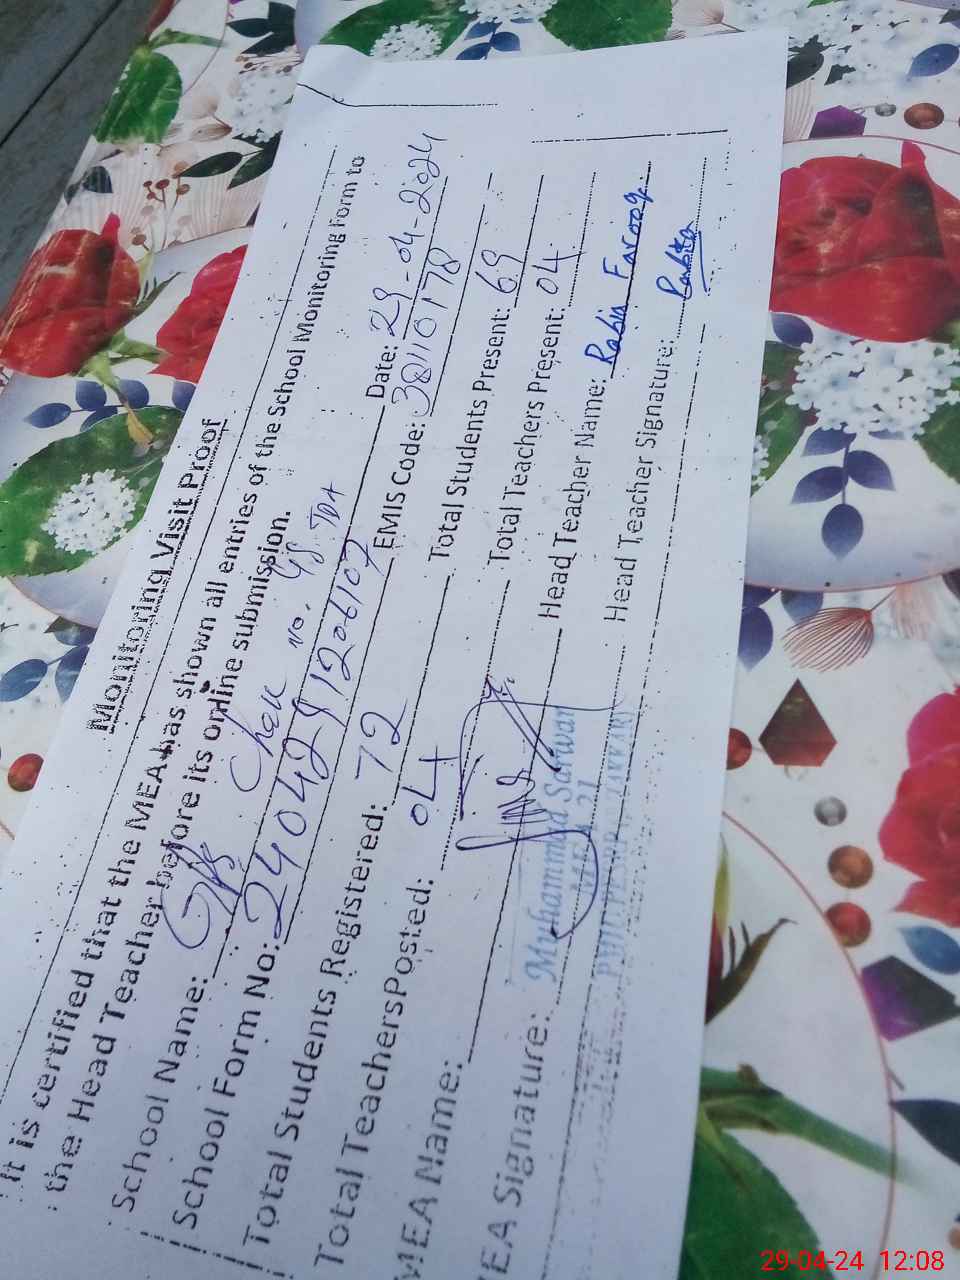 Monitoring Visit Proof
It is certified that the MEA has shown all entries of the School Monitoring Form to
the Head Teacher before its online submission.
School Name: GPS Chak No. 48 TDA Date: 29-04-2024
School Form No: 240429120610 7 EMIS Code: 38110178
Total Students Registered: 72 Total Students Present: 69
Total Teachers Posted: 04 Total Teachers Present: 04
MEA Name: Head Teacher Name: Rabia Farooq
MEA Signature: Head Teacher Signature: Rabia
Muhammad Sarwar
MEA 21
29-04-24 12:08